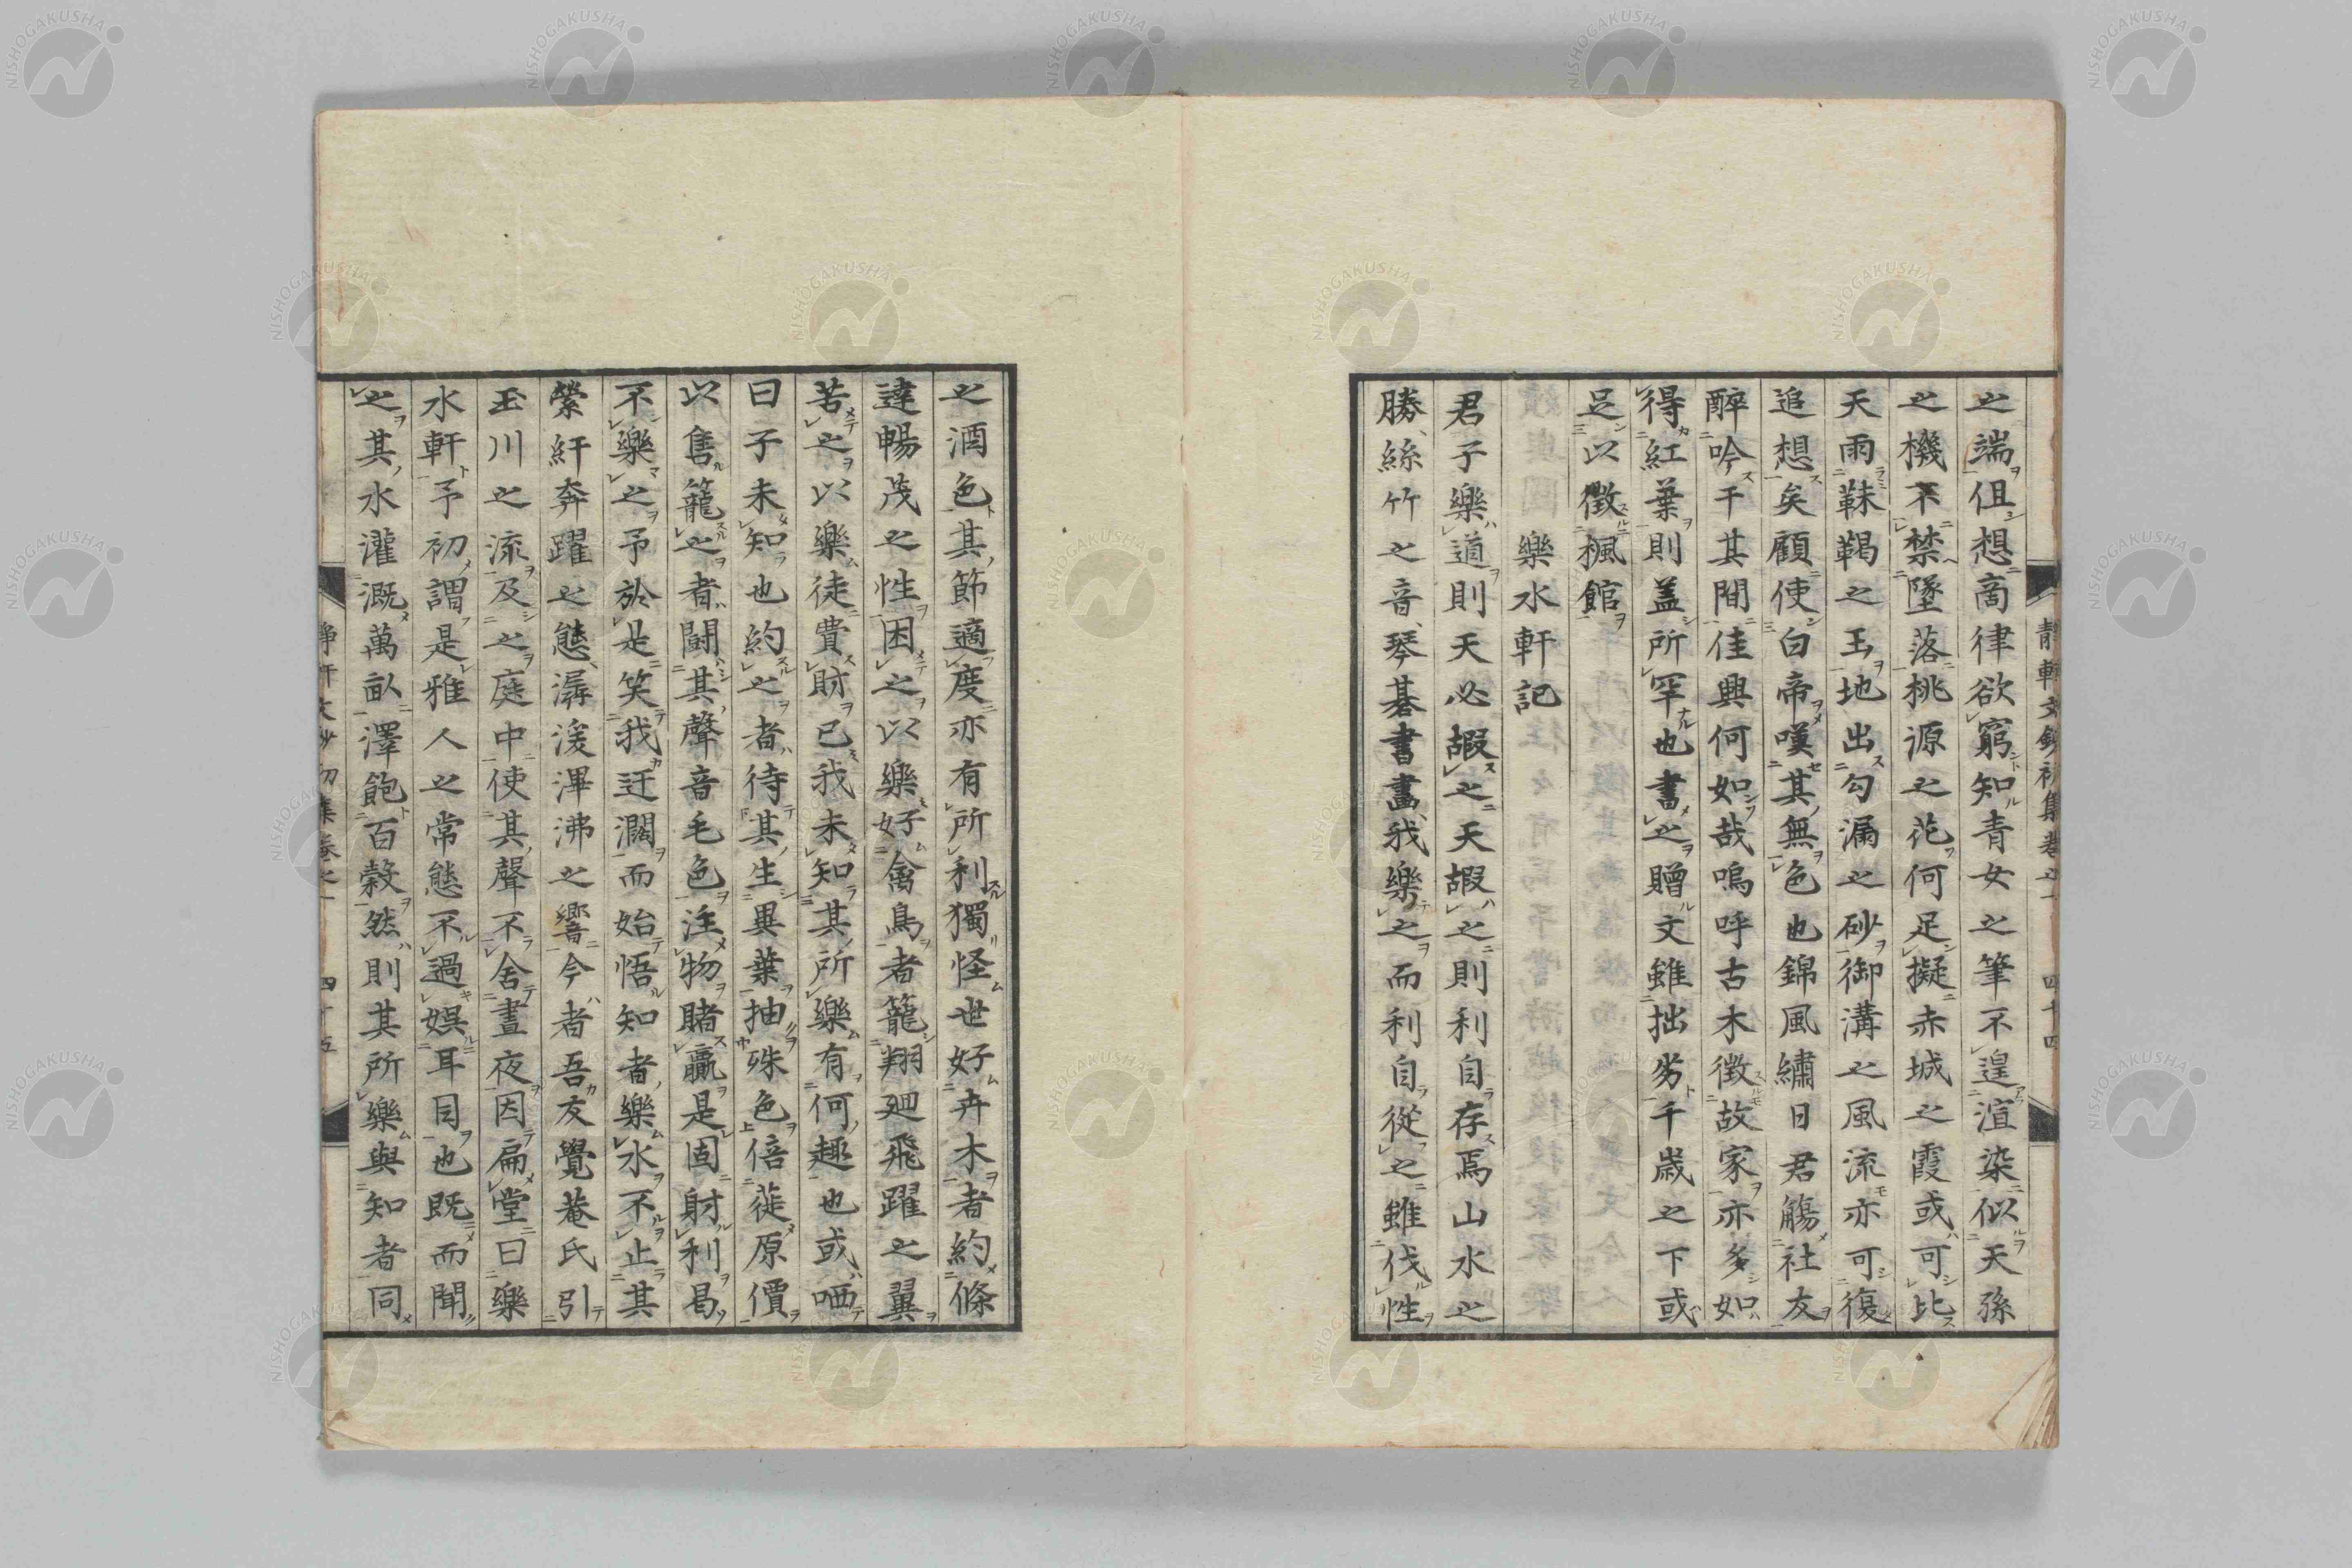 之端但想啇律欲窮知青女之筆不遑渲染似天孫
之機不禁墜落桃源之花何足擬赤城之霞或可比
天雨靺鞨之玉地出勾漏之砂御溝之風流亦可復
追想矣顧使白帝嘆其無色也錦風繡日君觴社友
醉吟干其間佳興何如哉嗚呼古木徴故家亦多如
得紅葉則盖所罕也書之贈文雖拙劣千歳之下或
足以徴楓館
樂水軒記
君子樂道則天必嘏之天嘏之則利自存焉山水之
勝絲竹之音琴碁書畵我樂之而利自從之雖伐性
靜軒文鈔初集卷之一 四十四
之酒色其節適度亦有所利獨怪世好卉木者約條
違暢茂之性困之以樂好禽鳥者籠翔廻飛躍之翼
苦之以樂徒費財已我未知其所樂有何趣也或哂
曰子未知也約之者待其生異葉抽殊色倍蓰原價
以售籠之者鬪其聲音毛色注物賭贏是固射利曷
不樂之予於是笑我迂濶而始悟知者樂水不止其
縈紆奔躍之態潺湲渾沸之響今者吾友覺菴氏引
玉川之流及之庭中使其聲不舍晝夜因扁堂曰樂
水軒予初謂是雅人之常態不過娯耳目也既而聞
之其水灌漑萬畝澤飽百穀然則其所樂與知者同
靜軒文鈔初集卷之一 四十五
NISHOGAKUSHA